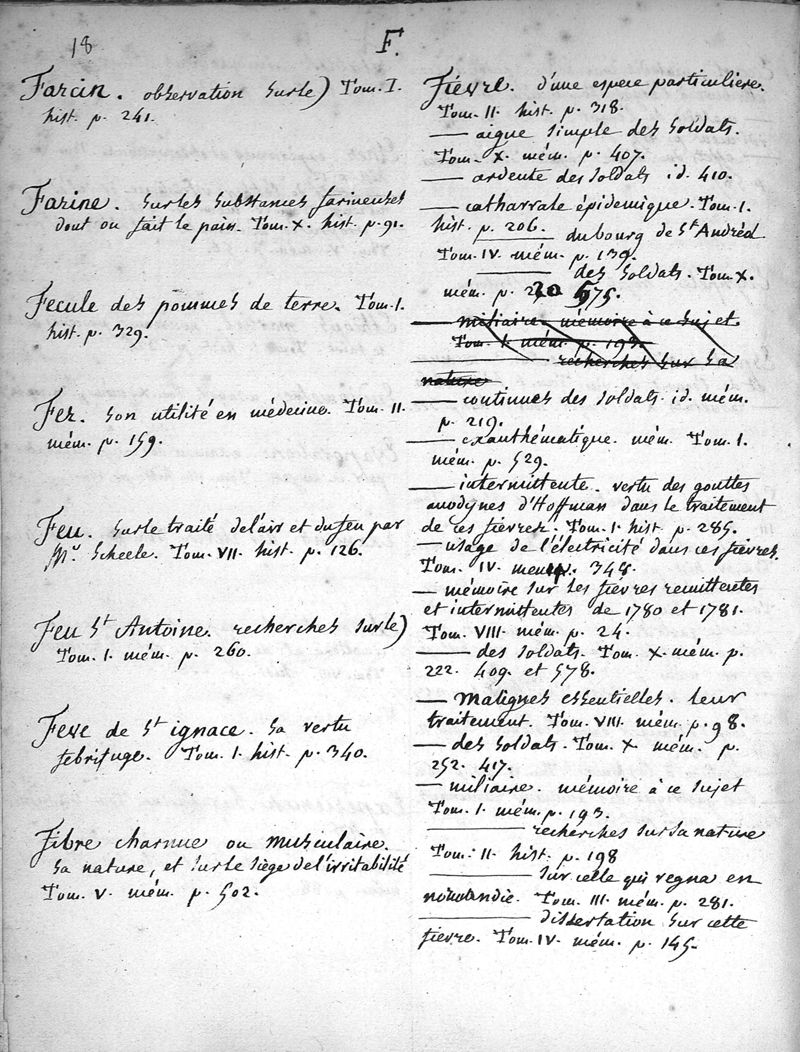 18
F.
Farcin. observation sur le) Tom. I.
hist. p. 241.
Farine. sur les substances farineuses
dont on fait le pain. Tom. X. hist. p. 91.
Fecule des pommes de terre. Tom. 1.
hist. p. 329.
Fer. son utilité en médecine. Tom. II.
mém. p. 159.
Feu. sur le traité de l'air et du feu par
Mr. Scheele. Tom. VII. hist. p. 126.
Feu St Antoine. recherches sur le)
Tom. 1. mém. p. 260.
Feve de St ignace. sa vertu
febrifuge. Tom. 1. hist. p. 340.
Fibre charnue ou musculaire.
sa nature, et sur le siège de l'irritabilité
Tom. V. mém. p. 502.
Fiévre. d'une espece particuliere.
Tom. II. hist. p. 318.
— aigue simple des soldats.
Tom. X. mém. p. 407.
— ardente des soldats id. 410.
— catharrale épidemique. Tom. 1.
hist. p. 206.
— du bourg de St Andréol
Tom. IV. mém. p. 139.
— des soldats. Tom. X.
mém. p. 575.
— miliaire mémoire à ce sujet
Tom. 1. mém. p. 193.
— recherches sur sa
nature
— continues des soldats. id. mém.
p. 219.
— exauthématique. mém. Tom. 1.
mém. p. 529.
— intermittente. vertu des gouttes
anodynes d'Hoffman dans le traitement
de ces fièvres. Tom. 1. hist. p. 285.
— usage de l'électricité dans ces fièvres.
Tom. IV. mem. p. 348.
— mémoire sur les fiévres remittentes
et intermittentes de 1780 et 1781.
Tom. VIII. mém. p. 24.
— des soldats. Tom. X. mém. p.
222. 409. et 578.
— malignes essentielles. leur
traitement. Tom. VIII. mém. p. 98.
— des soldats. Tom. X mém. p.
252. 417.
— miliaire. mémoire à ce sujet
Tom. 1. mém. p. 193.
— recherches sur sa nature
Tom. II. hist. p. 198
— sur celle qui regna en
normandie. Tom. III. mém. p. 281.
— dissertation sur cette
fievre. Tom. IV. mém. p. 145.